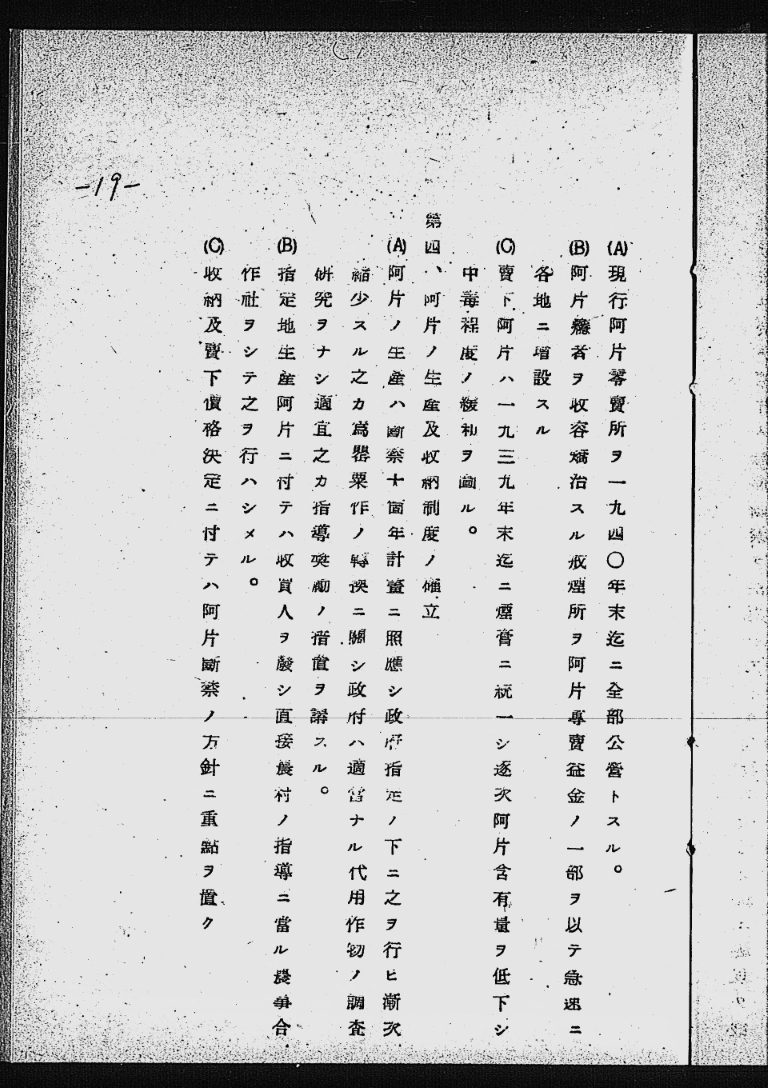 -19-
(A)現行阿片零賣所ヲ一九四〇年末迄ニ全部公營トスル。
(B)阿片癮者ヲ收容矯治スル戒煙所ヲ阿片專賣益金ノ一部ヲ以テ急速ニ
各地ニ增設スル
(C)賣下阿片ハ一九三九年末迄ニ煙膏ニ統一シ逐次阿片含有量ヲ低下シ
中毒程度ノ緩和ヲ圖ル。
第四、阿片ノ生產及收納制度ノ確立
(A)阿片ノ生產ハ斷禁十箇年計畫ニ照應シ政府指定ノ下ニ之ヲ行ヒ漸次
縮少スル之カ爲罌粟作ノ轉換ニ關シ政府ハ適當ナル代用作物ノ調査
硏究ヲナシ適宜之カ指導奬勵ノ措置ヲ講スル。
(B)指定地生產阿片ニ付テハ收買人ヲ廢シ直接農村ノ指導ニ當ル農事合
作社ヲシテ之ヲ行ハシメル。
(C)收納及賣下價格決定ニ付テハ阿片斷禁ノ方針ニ重點ヲ置ク